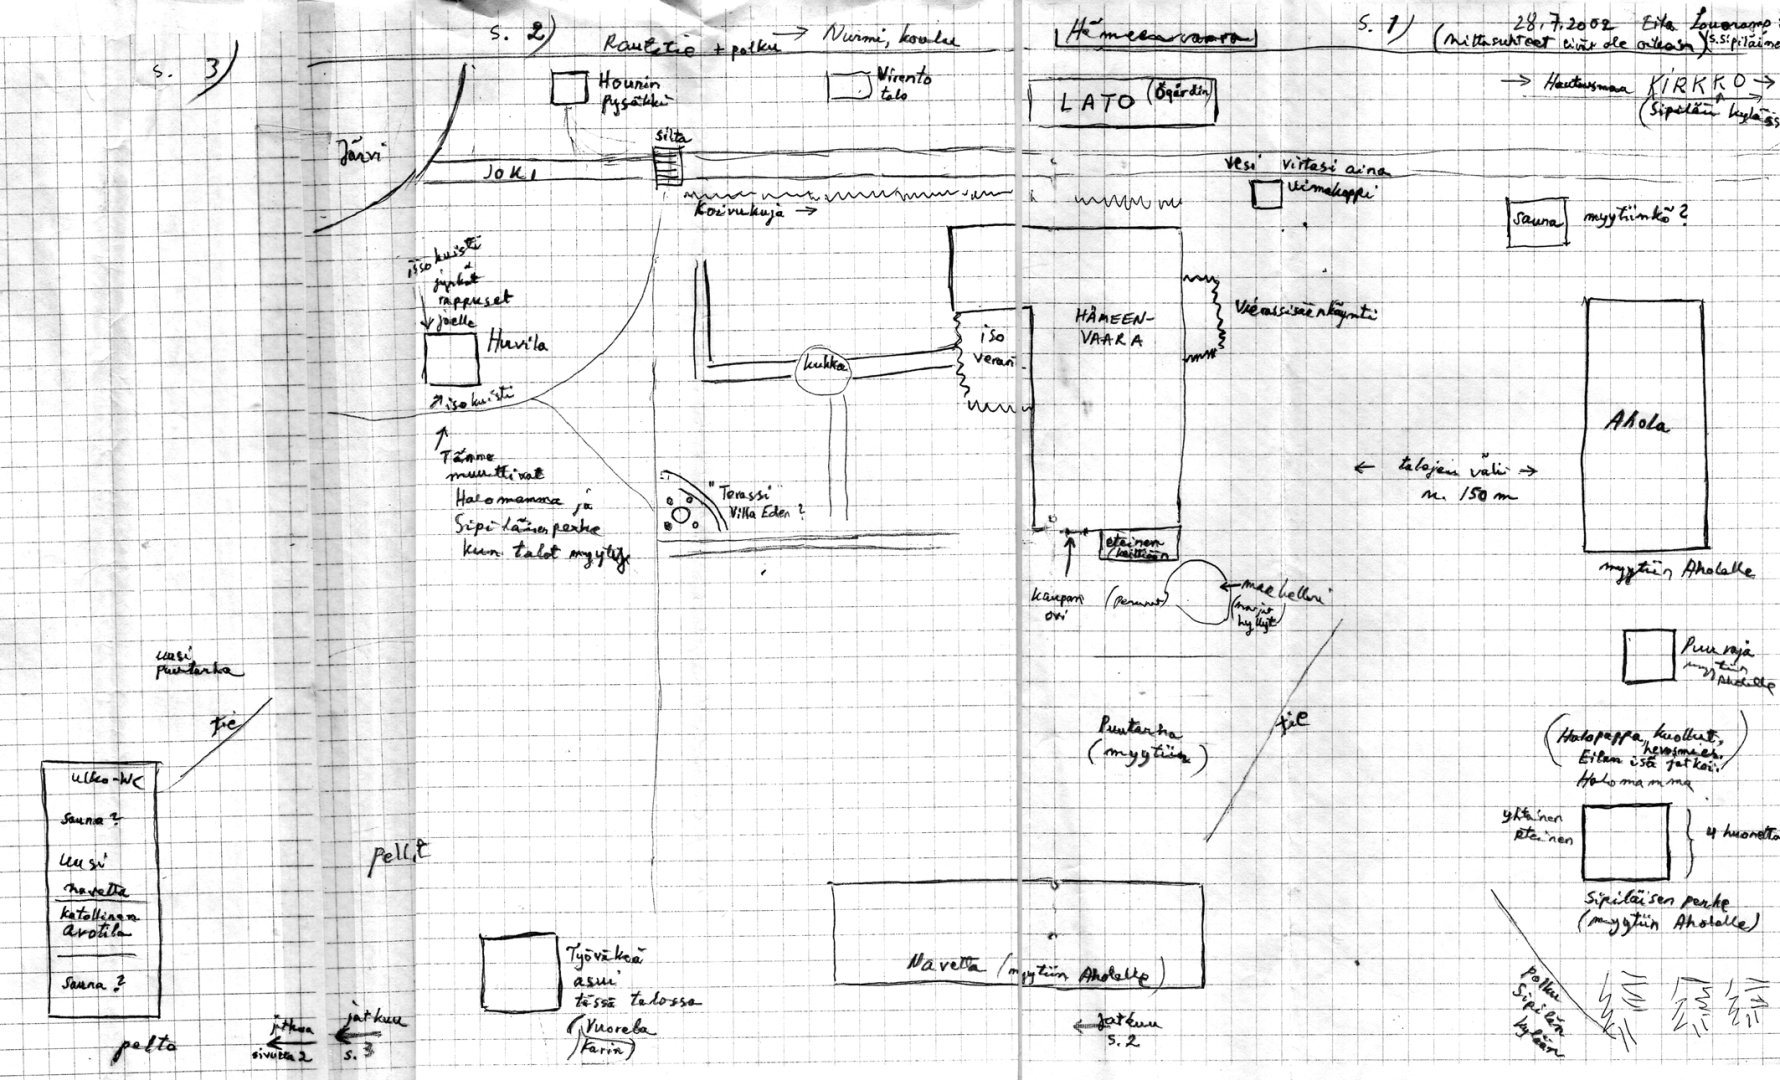 s. 3)
uusi
puutarha
tie
ulko-WC
sauna?
uusi
navetta
katollinen
avotila
sauna?
pelto
jatkuu
sivulta 2
jatkuu
s. 3
pellot
s. 2)
Rautatie + polku → Nurmi, koulu
Hounin
pysäkki
Virento
talo
Järvi
JOKI
silta
Koivukuja →
iso kuisti
jyrkät
rappuset
joelle
Huvila
iso kuisti
Tänne
muuttivat
Halomamma ja
Sipiläisen perhe
kun talot myytiin
kukka
iso
veran
"Terassi
Villa Eden?
Työväkeä
asui
tässä talossa
(Vuorela
Karin)
Navetta (myytiin Aholalle)
jatkuu
s. 2
Hämeenvaara
s. 1)
28.7.2002 Eila
(mittasuhteet eivät ole oikeassa)
LATO (Ögårdin)
→ Hautausmaa KIRKKO →
(Sipilän kylässä
vesi virtasi aina
uimakoppi
sauna
myytiinkö?
HÄMEEN-
VAARA
Vierassisäänkäynti
Ahola
← talojen väli →
n. 150 m
myytiin Aholalle
eteinen
(keittiöön
kaupan
ovi
(perunat)
← maakellari
(marjat
hyllyt)
Puutarha
(myytiin)
tie
Puuvaja
myytiin
Aholalle
(Halopappa kuollut,
hevosmies.
Eilan isä jatkoi)
Halomamma
yhteinen
eteinen
4 huonetta
Sipiläisen perhe
(myytiin Aholalle)
polku
Sipilän
kylään